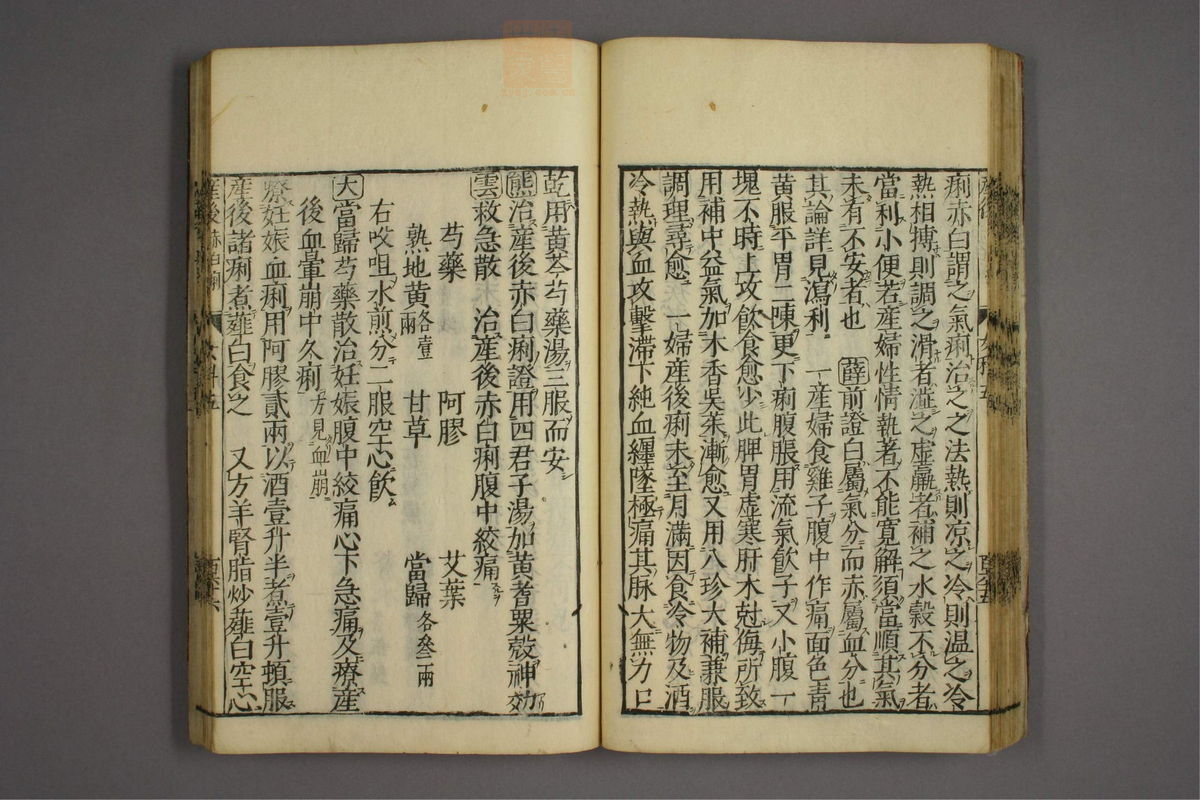 痢赤白謂之氣痢治之之法熱則凉之冷則温之冷
熱相搏則調之滑者澁之虚羸者補之水穀不分者
當利小便若産婦性情執著不能寛解須當順其氣
未有不安者也 薛前證白屬氣分而赤屬血分也
其論詳見瀉利 一産婦食雞子腹中作痛面色青
黄服平胃二陳更下痢腹脹用流氣飲子又小腹一
塊不時上攻飲食愈少此脾胃虚寒肝木尅侮所致
用補中益氣加木香吳茱漸愈又用八珍大補兼服
調理尋愈 一婦産後痢未至月滿因食冷物及酒
冷熱與血攻擊滯下純血纏墜極痛其脉大無力口
乾用黄芩芍藥湯三服而安
熊治産後赤白痢證用四君子湯加黄耆粟殻神効
雲救急散 治産後赤白痢腹中絞痛
芍藥 阿膠 艾葉
熟地黄各壹兩 甘草 當歸各叄兩
右㕮咀水煎分二服空心飲
大當歸芍藥散治妊娠腹中絞痛心下急痛及療産
後血暈崩中久痢方見血崩
療妊娠血痢用阿膠貳兩以酒壹升半煮壹升頓服
産後諸痢煮薤白食之 又方羊腎脂炒薤白空心
産後 赤白痢